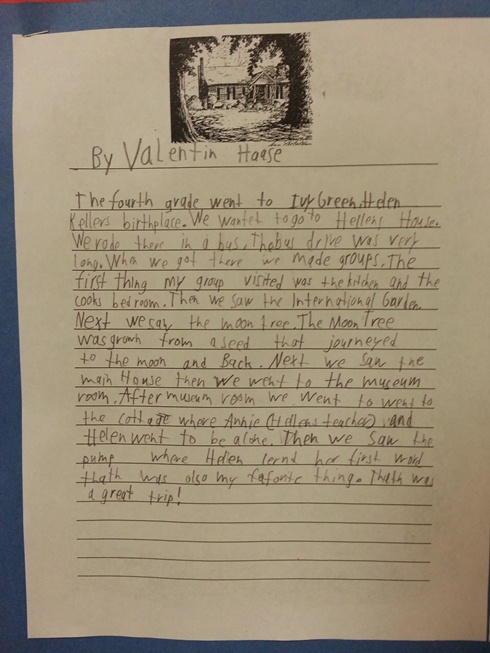 By Valentin Haase
The fourth grade went to Ivy Green, Helen
Kellers birthplace. We wantet to go to Hellens House.
We rode there in a bus. The bus drive was very
long. When we got there we made groups. The
first thing my group visited was the kitchen and the
cooks bedroom. Then we saw the International Garden.
Next we say the moon tree. The Moon Tree
was grown from a seed that journeyed
to the moon and Back. Next we saw the
main House then we went to the museum
room. After museum room we went to went to
the cottage where Annie (Hellens teacher) and
Helen went to be alone. Then we saw the
pump where Helen lernd her first word
thath was also my faforite thing. Thath was
a great trip!